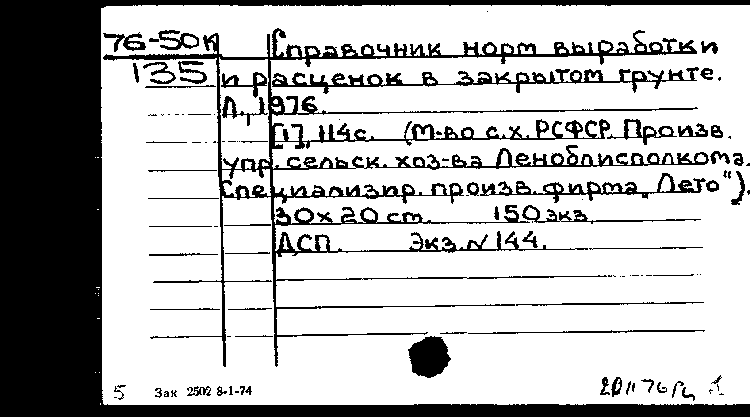 76-50к Справочник норм выработки
135 и расценок в закрытом грунте.
Л., 1976.
[1], 114с. (М-во с.х. РСФСР. Произв.
упр. сельск. хоз-ва Леноблисполкома.
Специализир. произв. фирма „Лето").
30х20 cm. 150 экз.
ДСП. Экз. N 144.
5 Зак 2502 8-1-74